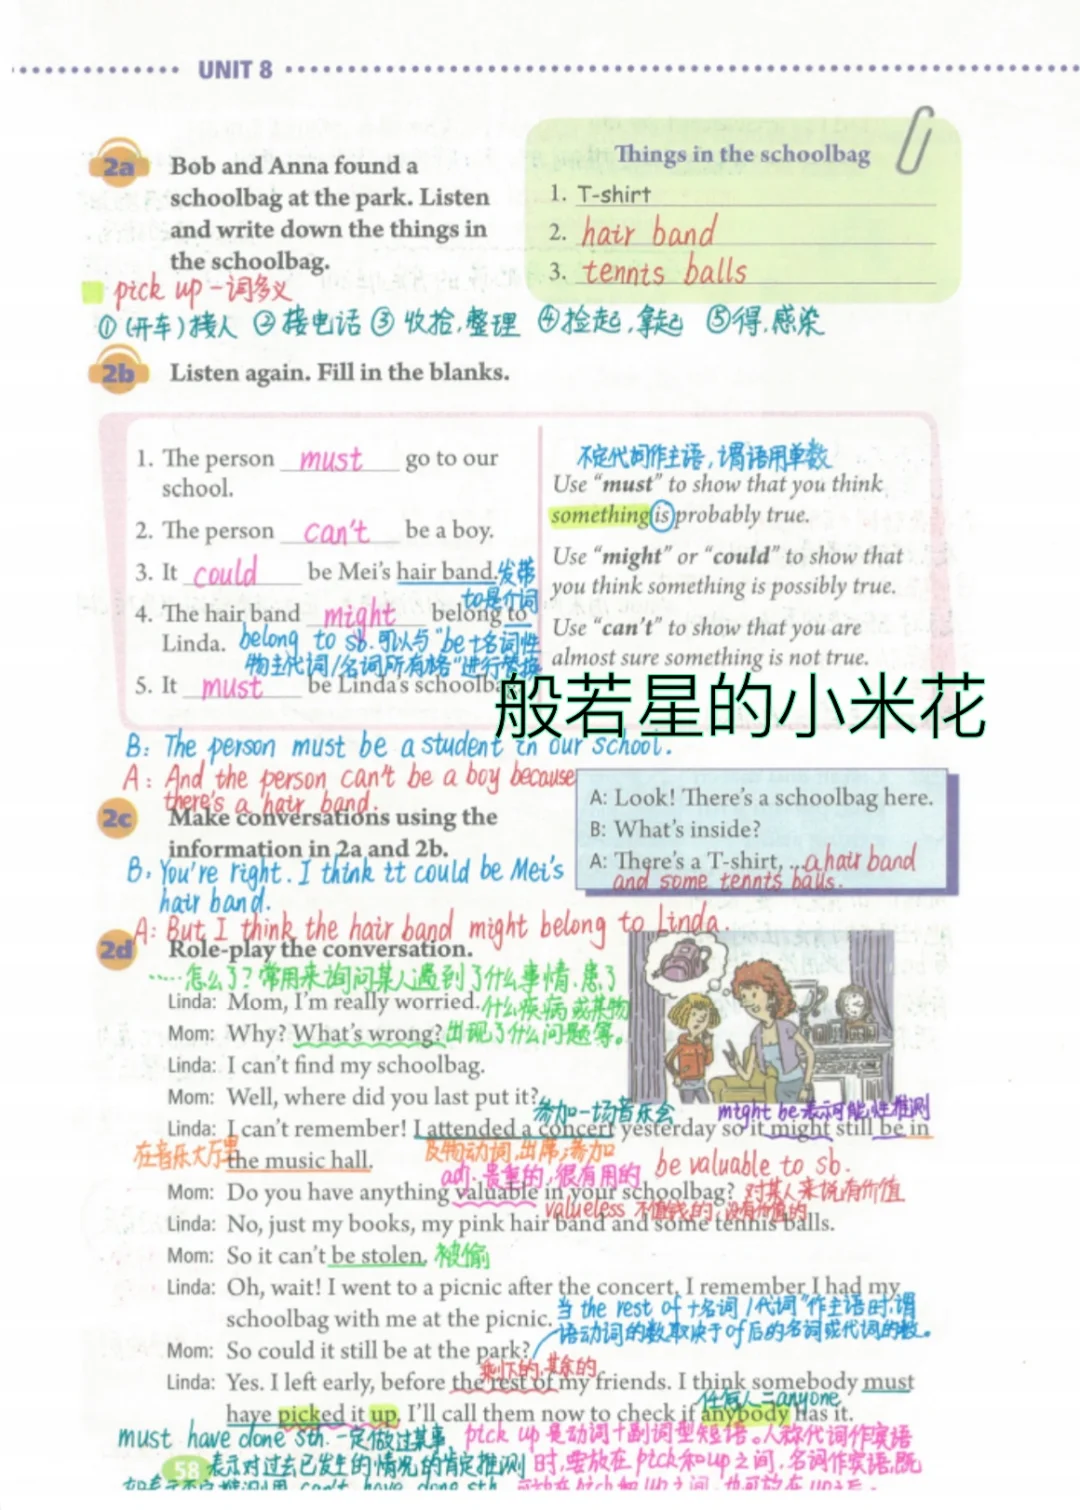 UNIT 8
2a
Bob and Anna found a
schoolbag at the park. Listen
and write down the things in
the schoolbag.
Things in the schoolbag
1. T-shirt
2. hair band
3. tennts balls
pick up 一词多义
①(开车)接人 ②接电话 ③收拾,整理 ④捡起,拿起 ⑤得,感染
2b
Listen again. Fill in the blanks.
1. The person must go to our
school.
2. The person can't be a boy.
3. It could be Mei's hair band. 发带
to是介词
4. The hair band might belong to
Linda. belong to sb. 可以与"be+名词性
物主代词/名词所有格"进行替换
5. It must be Linda's schoolba
不定代词作主语,谓语用单数
Use "must" to show that you think
something is probably true.
Use "might" or "could" to show that
you think something is possibly true.
Use "can't" to show that you are
almost sure something is not true.
般若星的小米花
B: The person must be a student in our school.
A: And the person can't be a boy because
there's a hair band.
2c
Make conversations using the
information in 2a and 2b.
A: Look! There's a schoolbag here.
B: What's inside?
A: There's a T-shirt, ... a hair band
and some tennts balls.
B: You're right. I think tt could be Mei's
hair band.
A: But I think the hair band might belong to Linda.
2d
Role-play the conversation.
……怎么了?常用来询问某人遇到了什么事情、患了
Linda: Mom, I'm really worried. 什么疾病或某物
Mom: Why? What's wrong? 出现了什么问题等。
Linda: I can't find my schoolbag.
Mom: Well, where did you last put it?
参加一场音乐会 might be表示可能性推测
Linda: I can't remember! I attended a concert yesterday so it might still be in
在音乐大厅里 the music hall. 及物动词,出席;参加
adj. 贵重的,很有用的 be valuable to sb.
Mom: Do you have anything valuable in your schoolbag? 对某人来说有价值
valueless 不值钱的,没有价值的
Linda: No, just my books, my pink hair band and some tennis balls.
Mom: So it can't be stolen. 被偷
Linda: Oh, wait! I went to a picnic after the concert. I remember I had my
schoolbag with me at the picnic. 当the rest of +名词/代词"作主语时,谓
语动词的数取决于of后的名词或代词的数。
Mom: So could it still be at the park?
剩下的,其余的
Linda: Yes. I left early, before the rest of my friends. I think somebody must
任何人=anyone
have picked it up. I'll call them now to check if anybody has it.
must have done sth. 一定做过某事 pick up 是动词+副词型短语。人称代词作宾语
58 表示对过去已发生的情况的肯定推测 时,要放在pick和up之间,名词作宾语,既